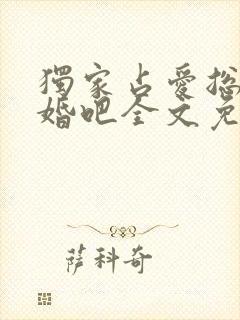 獨家占愛總
婚吧全文免
萨科奇